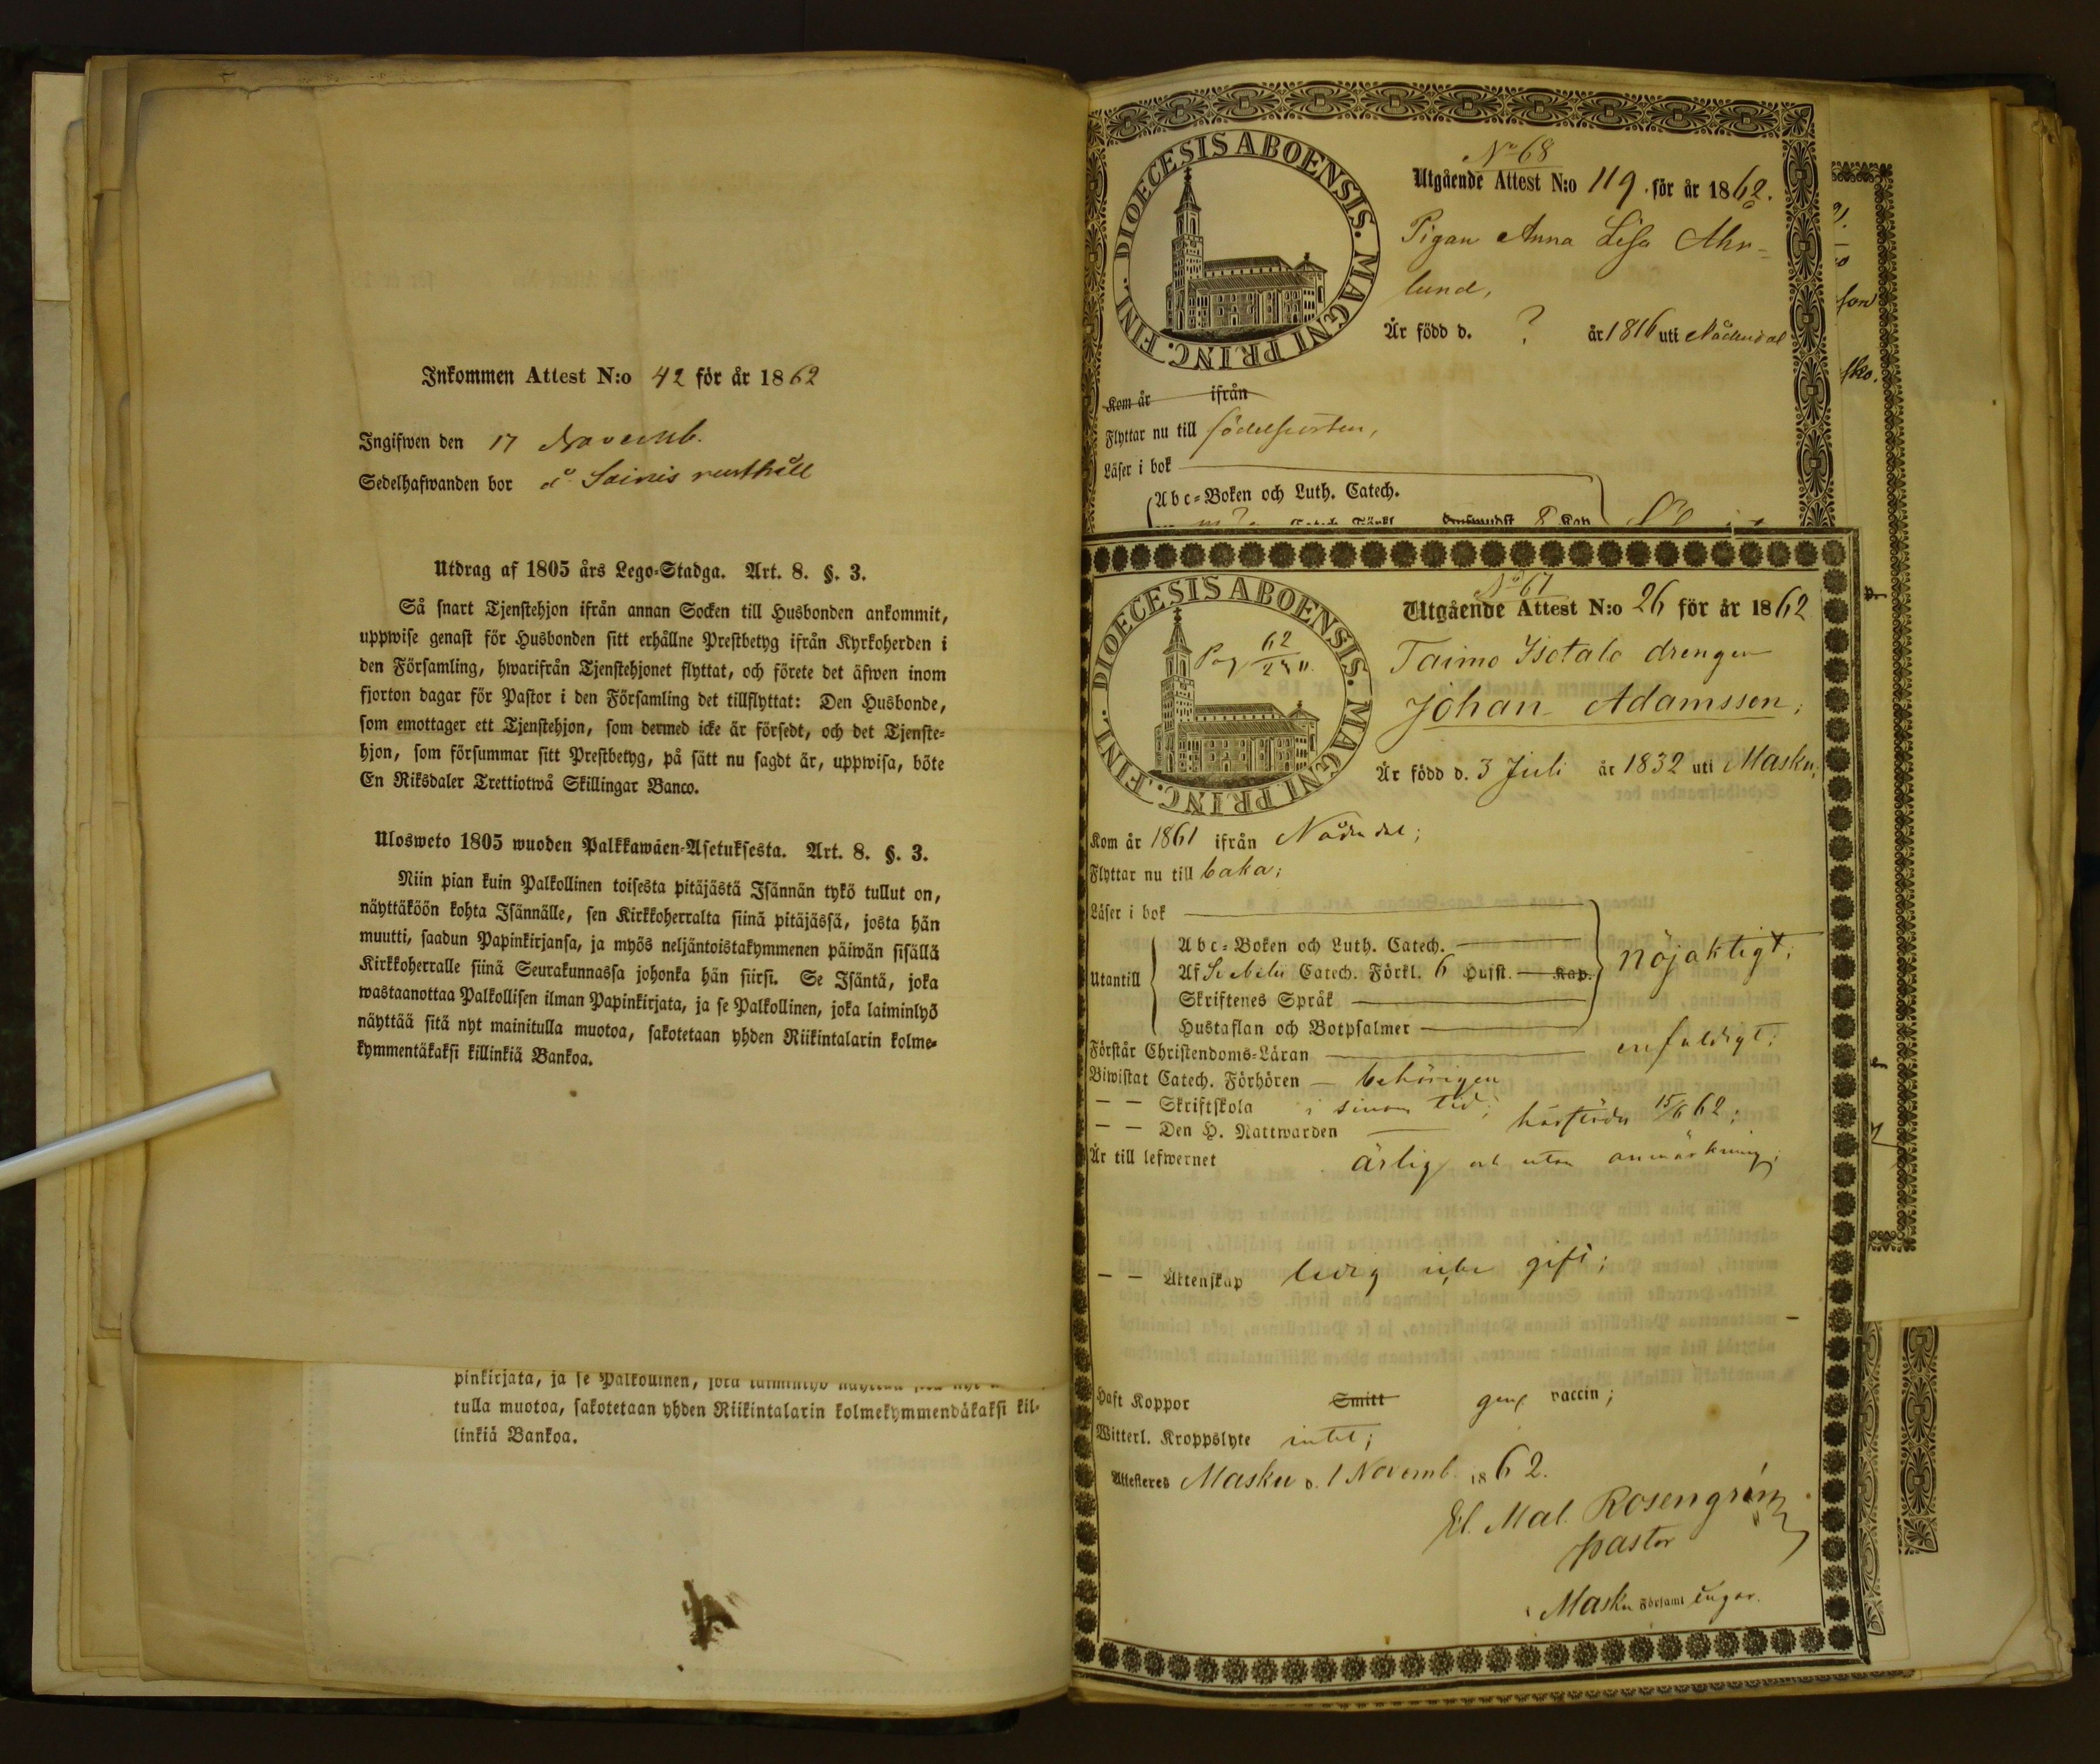 Inkommen Attest N:o 42 för år 1862
Ingifwen den 17 Novemb.
Sedelhafwanden bor å Soinis rusthåll
Utdrag af 1805 års Lego-Stadga. Art. 8. §. 3.
Så snart Tjenstehjon ifrån annan Socken till Husbonden ankommit,
uppwise genast för Husbonden sitt erhållne Prestbetyg ifrån Kyrkoherden i
den Församling, hwarifrån Tjenstehjonet flyttat, och förete det äfwen inom
fjorton dagar för Pastor i den Församling det tillflyttat: Den Husbonde,
som emottager ett Tjenstehjon, som dermed icke är försedt, och det Tjenste=
hjon, som försummar sitt Prestbetyg, på sätt nu sagdt är, uppwisa, böte
En Riksdaler Trettiotwå Skillingar Banco.
Ulosweto 1805 wuoden Palkkawäen-Asetuksesta. Art. 8. §. 3.
Niin pian kuin Palkollinen toisesta pitäjästä Isännän tykö tullut on,
näyttäköön kohta Isännälle, sen Kirkkoherralta siinä pitäjässä, josta hän
muutti, saadun Papinkirjansa, ja myös neljäntoistakymmenen päiwän sisällä
Kirkkoherralle siinä Seurakunnassa johonka hän siirsi. Se Isäntä, joka
wastaanottaa Palkollisen ilman Papinkirjata, ja se Palkollinen, joka laiminlyö
näyttää sitä nyt mainitulla muotoa, sakotetaan yhden Riikintalarin kolme=
kymmentäkaksi killinkiä Bankoa.
pinkirjata, ja se Palkollinen, joka laiminlyö näyttää sitä nyt
tulla muotoa, sakotetaan yhden Riikintalarin kolmekymmendäkaksi kil=
linkiä Bankoa.
DIOECESIS ABOENSIS. MAGNI PRINC. FINL.
No 68
Utgående Attest N:o 119. för år 1862.
Pigan Anna Lisa Ahr=
lund,
Är född d. ? år 1816 uti Nådendal
Kom år ifrån
Flyttar nu till födelseorten,
Läser i bok
Abc=Boken och Luth. Catech.
8 Kap
son
sko.
DIOECESIS ABOENSIS. MAGNI PRINC. FINL.
Pag 62
No 67
Utgående Attest N:o 26 för år 1862
Taimo Isotalo drengen
Johan Adamsson;
Är född d. 3 Juli år 1832 uti Masku;
Kom år 1861 ifrån Nådendal;
Flyttar nu till baka;
Läser i bok
Utantill
Abc=Boken och Luth. Catech.
Af Sebelii Catech. Förkl. 6 Hufst. Kap.
nöjaktigt;
Skriftenes Språk
Hustaflan och Botpsalmer
Förstår Christendoms=Läran enfaldigt;
Biwistat Catech. Förhören behörigen
— — Skriftskola i sinom tid;
— — Den H. Nattwarden härstädes 15/6 62;
Är till lefwernet ärlig och utan anmärkning;
— — Äktenskap ledig icke gift;
Haft Koppor Smitt gen vaccin;
Witterl. Kroppslyte intet;
Attesteras Masku d. 1 Novemb. 1862.
El. Mal. Rosengrén
pastor
Masku Församl ingar.